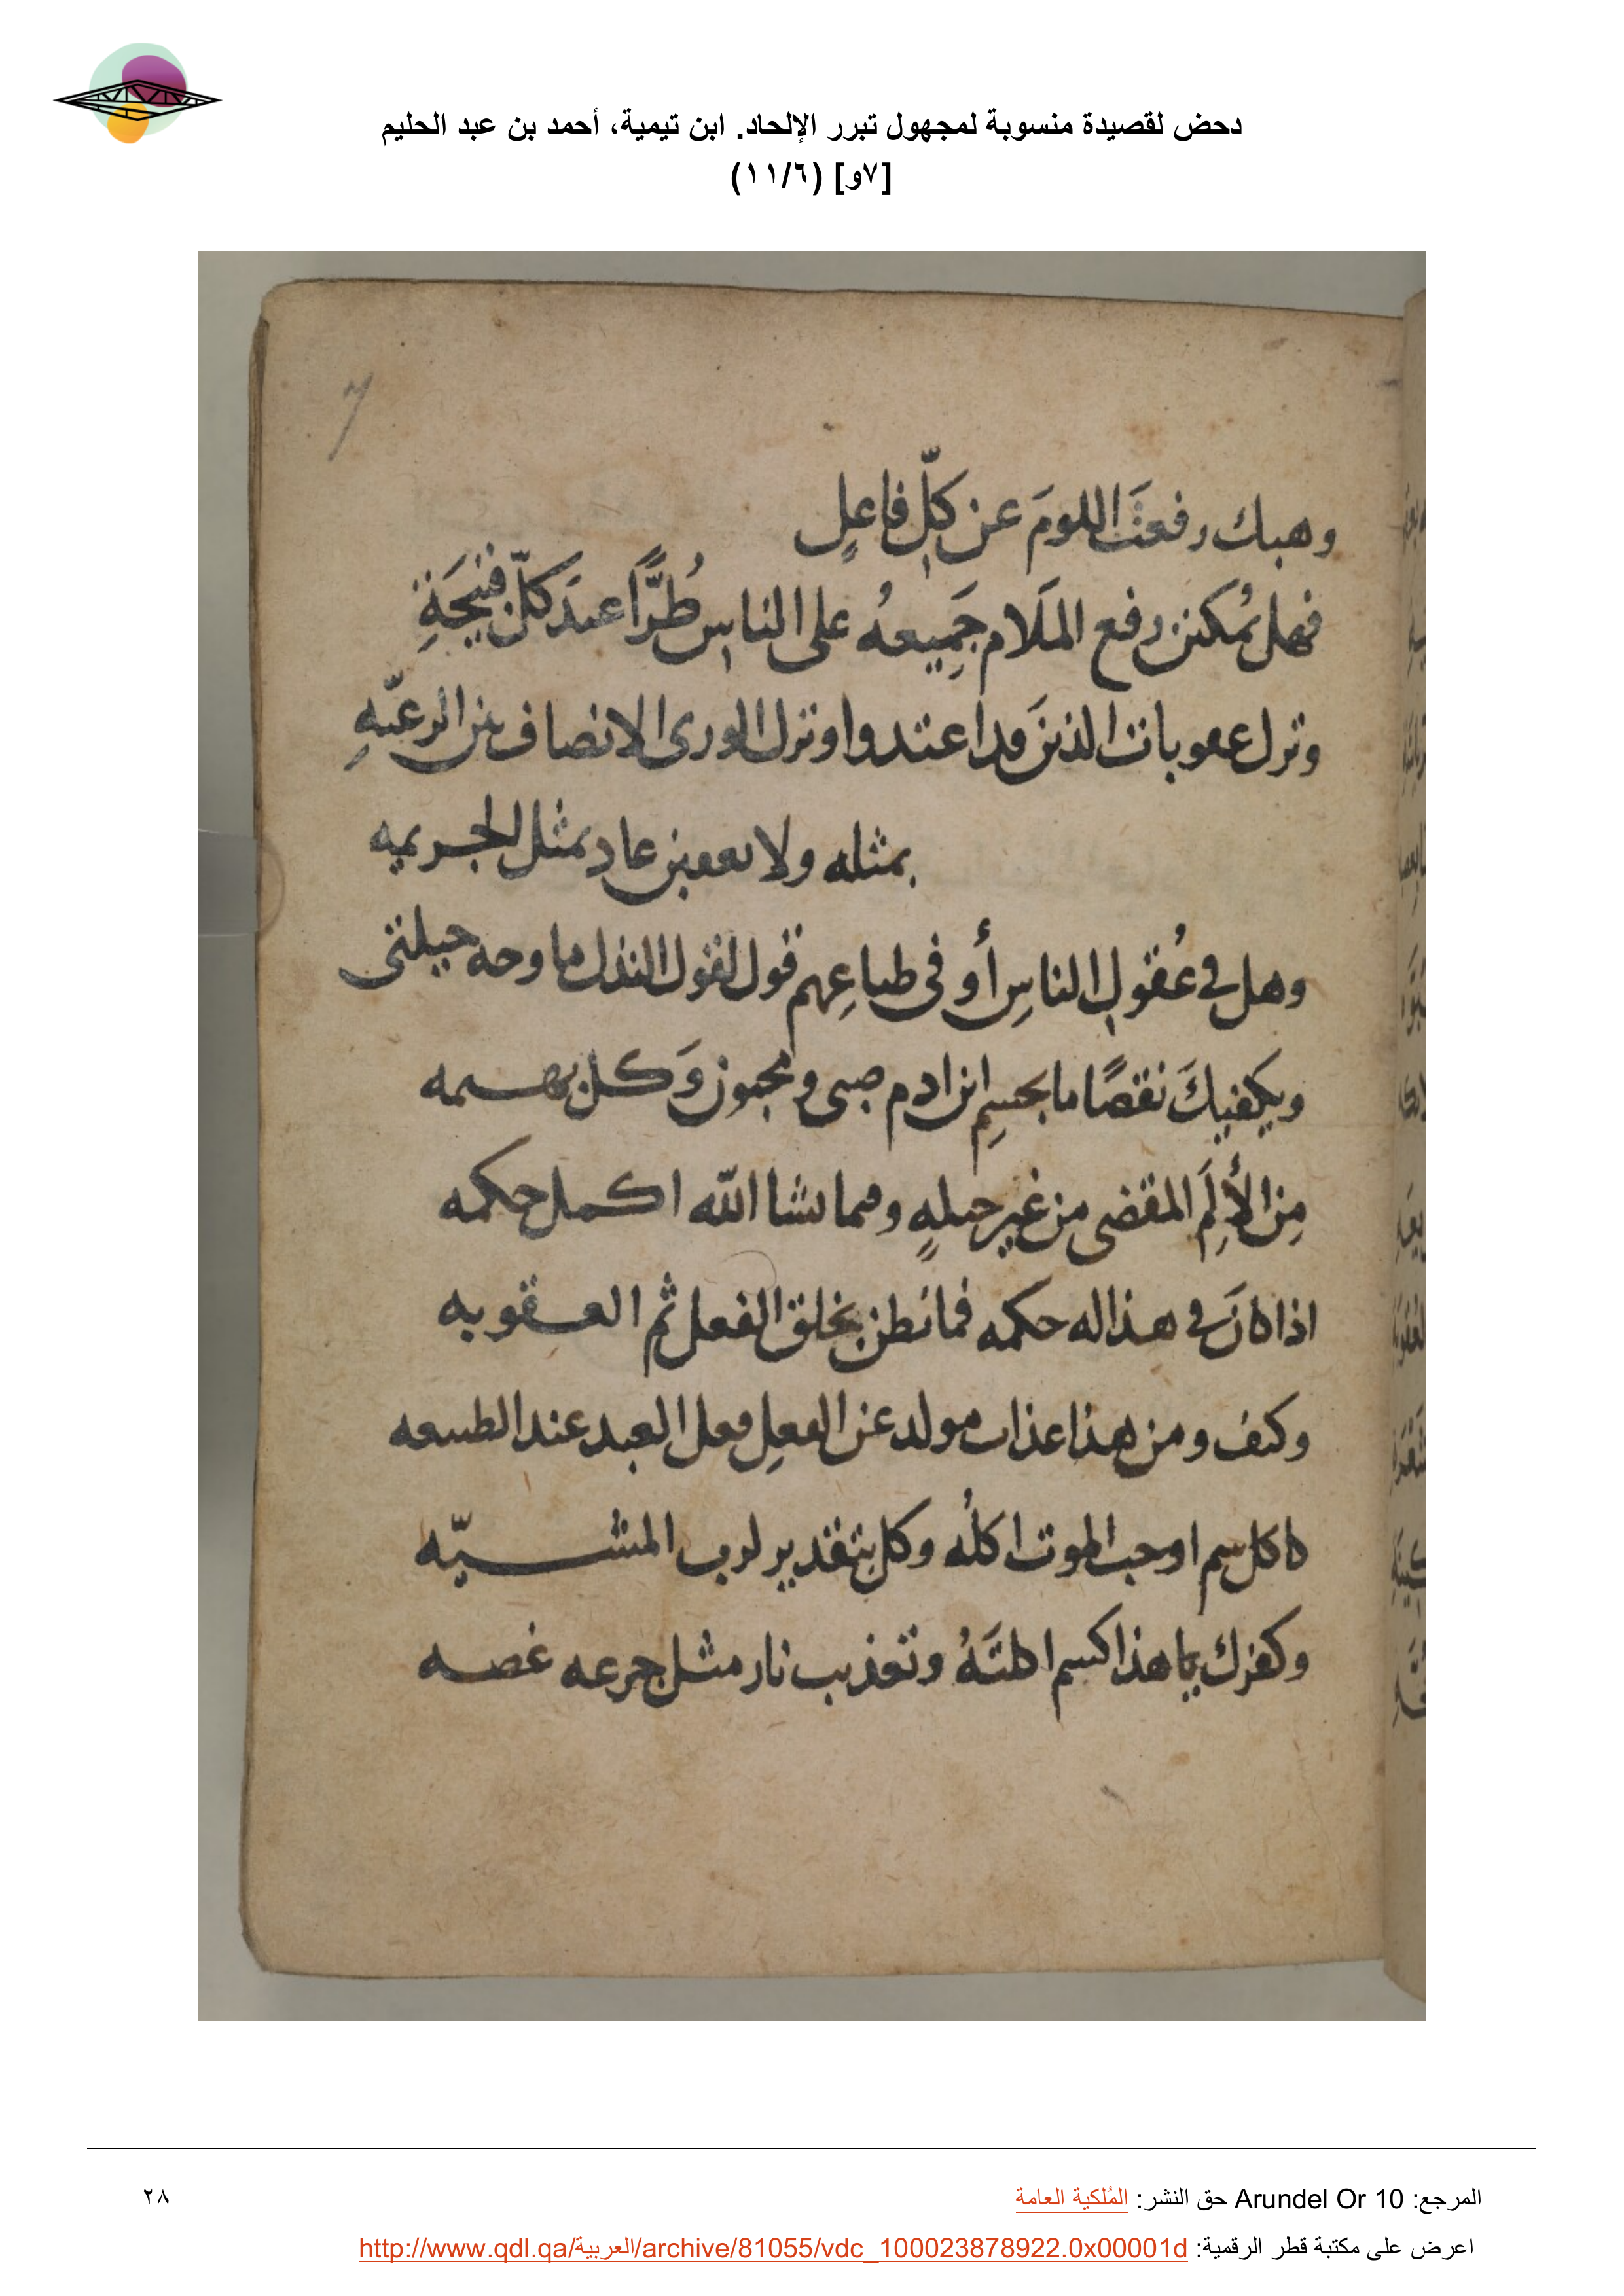 دحض لقصيدة منسوبة لمجهول تبرر الإلحاد. ابن تيمية، أحمد بن عبد الحليم
[٧و] (١١/٦)
7
وهبك رفعتَ اللومَ عن كلِّ فاعلٍ
فهل يُمكنن رفع الملَام جَمِيعهُ على الناسِ طُرًّا عندَ كلّ قبيحَةِ
وترك عقوبات الذينَ قد اعتدوا وترك الورى الانصاف بين الرعيّهِ
بمثله ولا يعقبن عاد بمثل الجريمه
وهل في عُقولِ الناسِ أو في طباعِهم قول لقول النذل ما وجه حيلتى
ويكفيكَ نقصًا ما بجسمِ ابن ادم صبى ومجنون وَكل بهيمه
مِن الأَلِمَ المقضى من غير حيلهٍ وفيما يشا الله اكمل حكمه
اذا كانَ في هذا له حكمه فما نظن بخلق الفعل ثم العقوبه
وكيف ومن هذا عذاب مولد عن الفعلِ فعل العبد عند الطبيعه
كاكل سم اوجب الموت اكلُه وكل بتقدير لرب المشيّه
وكفرك يا هذا كسم اكلتَهُ وتعذيب نار مثل جرعه غصه
المرجع: Arundel Or 10 حق النشر: المُلكية العامة
٢٨
اعرض على مكتبة قطر الرقمية: http://www.qdl.qa/العربية/archive/81055/vdc_100023878922.0x00001d